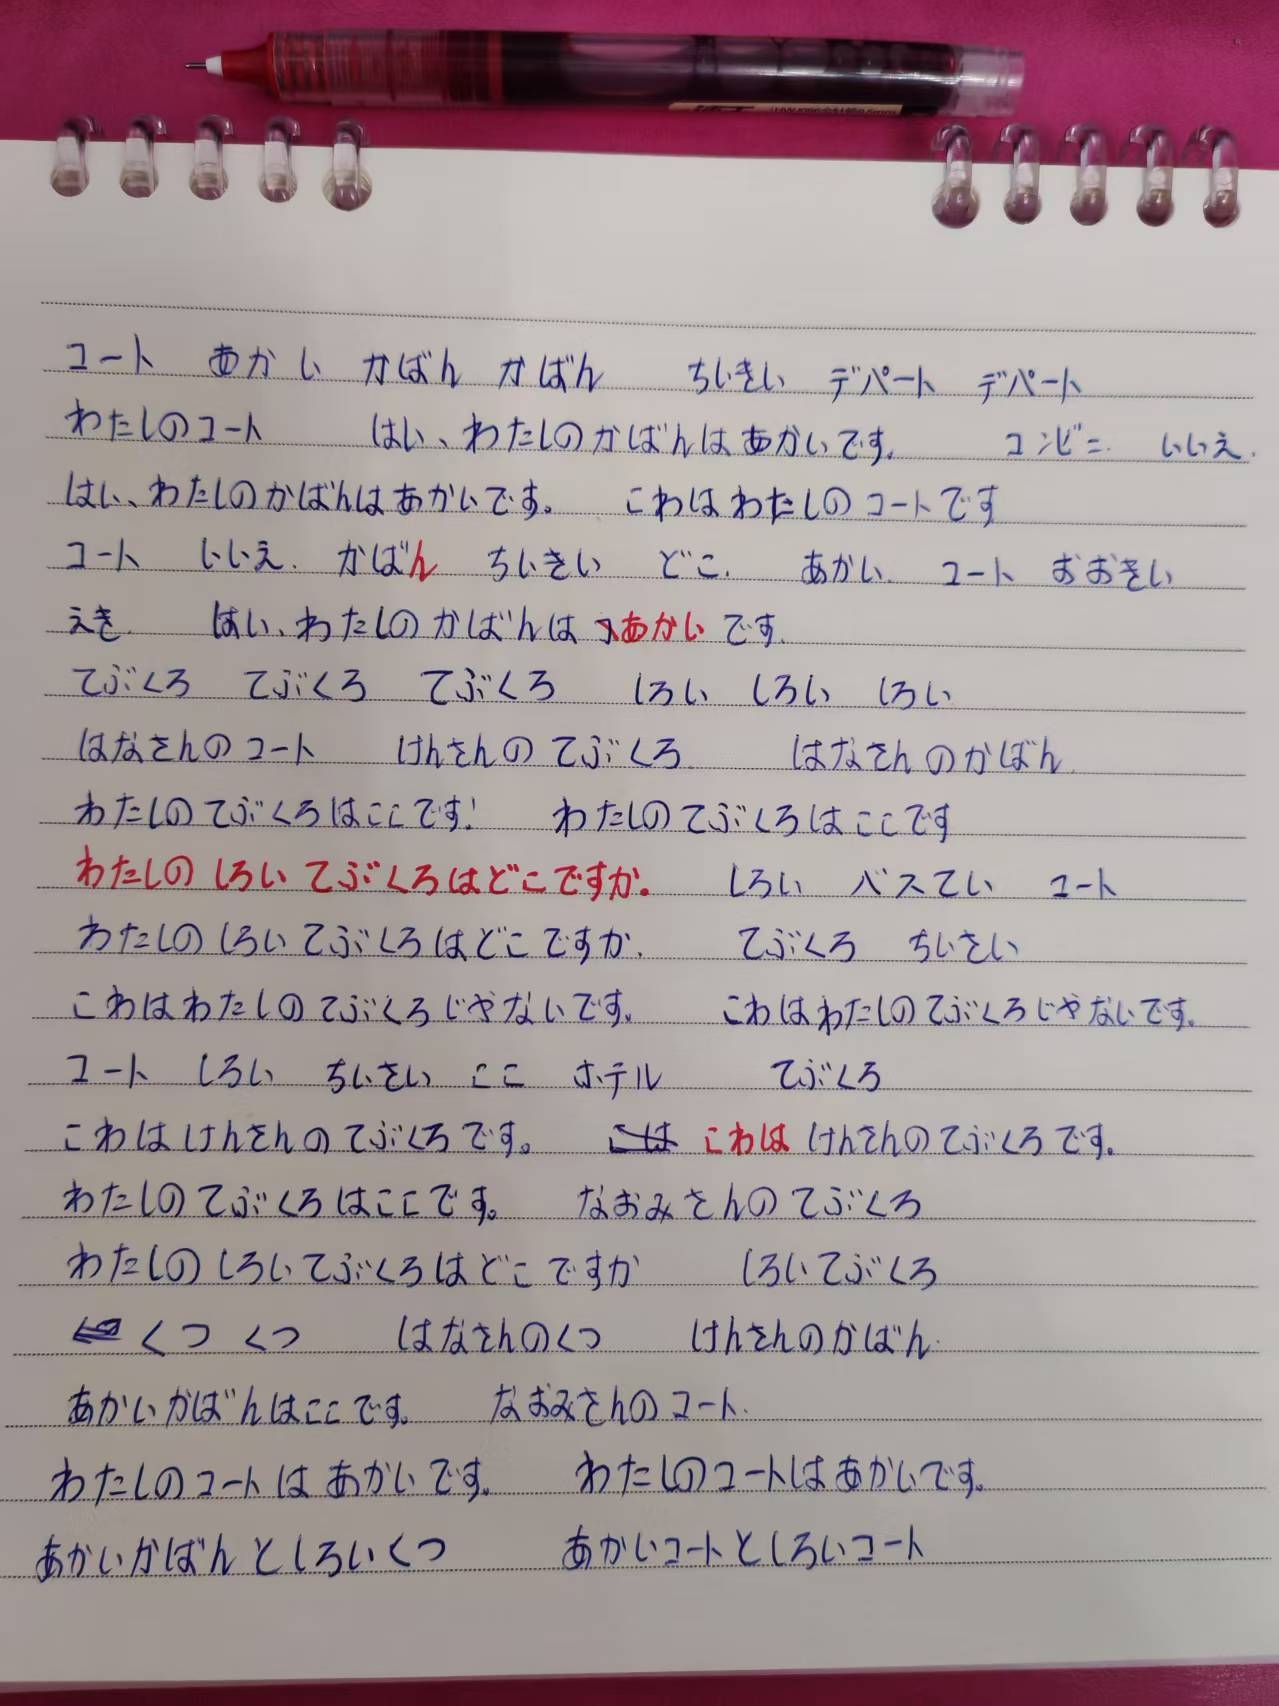 コート あかい かばん かばん ちいきい デパート デパート
わたしのコート はい、わたしのかばんはあかいです。 コンビニ. いいえ.
はい、わたしのかばんはあかいです。 こわはわたしのコートです
コート いいえ. かばん ちいきい どこ. あかい. コート おおきい
えき. はい、わたしのかばんは あかい です.
てぶくろ てぶくろ てぶくろ しろい しろい しろい
はなさんのコート けんさんのてぶくろ. はなさんのかばん.
わたしのてぶくろはここです! わたしのてぶくろはここです
わたしのしろいてぶくろはどこですか。 しろい バスてい コート
わたしのしろいてぶくろはどこですか. てぶくろ ちいさい
こわはわたしのてぶくろじゃないです。 こわはわたしのてぶくろじゃないです。
コート しろい ちいさい ここ ホテル てぶくろ
こわはけんさんのてぶくろです。 こは こわは けんさんのてぶくろです.
わたしのてぶくろはここです。 なおみさんのてぶくろ
わたしのしろいてぶくろはどこですか しろいてぶくろ
くつ くつ はなさんのくつ けんさんのかばん.
あかいかばんはここです。 なおみさんのコート.
わたしのコートはあかいです。 わたしのコートはあかいです。
あかいかばんとしろいくつ あかいコートとしろいコート